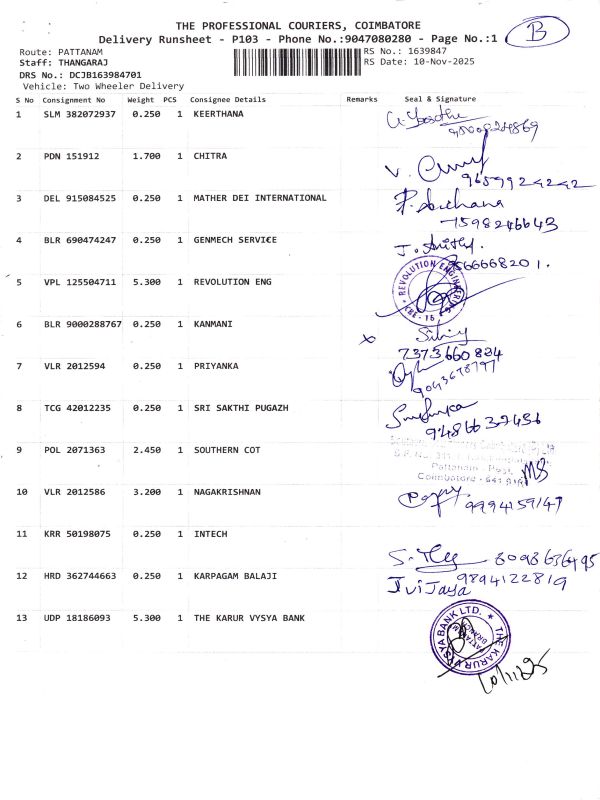 THE PROFESSIONAL COURIERS, COIMBATORE
Delivery Runsheet - P103 - Phone No.:9047080280 - Page No.:1
B
Route: PATTANAM
RS No.: 1639847
Staff: THANGARAJ
RS Date: 10-Nov-2025
DRS No.: DCJB163984701
Vehicle: Two Wheeler Delivery
S No Consignment No Weight PCS Consignee Details Remarks Seal & Signature
1 SLM 382072937 0.250 1 KEERTHANA
2 PDN 151912 1.700 1 CHITRA
9659924242
3 DEL 915084525 0.250 1 MATHER DEI INTERNATIONAL
7598246643
4 BLR 690474247 0.250 1 GENMECH SERVICE
5 VPL 125504711 5.300 1 REVOLUTION ENG
REVOLUTION ENGINEERING
6 BLR 9000288767 0.250 1 KANMANI
7373660824
7 VLR 2012594 0.250 1 PRIYANKA
8 TCG 42012235 0.250 1 SRI SAKTHI PUGAZH
9486639456
9 POL 2071363 2.450 1 SOUTHERN COT
Pattanam - Post,
Coimbatore - 641 016
10 VLR 2012586 3.200 1 NAGAKRISHNAN
9994159147
11 KRR 50198075 0.250 1 INTECH
8098636495
12 HRD 362744663 0.250 1 KARPAGAM BALAJI
J vijaya 9894122819
13 UDP 18186093 5.300 1 THE KARUR VYSYA BANK
THE KARUR VYSYA BANK LTD.
PATTANAM BRANCH
10/11/25